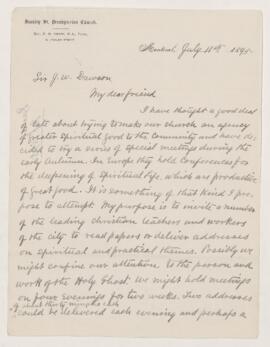 Stanley St. Presbyterian Church.
Montreal July 11th 1895
Sir J. W. Dawson
My dear friend
I have thought a good deal
of late about trying to make our church an agency
of greater spiritual good to the community and have de-
cided to try a series of special meetings during the
early Autumn. In Europe they hold Conferences for
the deepening of Spiritual life, which are productive
of great good. It is something of that kind I pro-
pose to attempt. My purpose is to invite a number
of the leading christian teachers and workers
of the city to read papers or deliver addresses
on spiritual and practical themes. Possibly we
might confine our attention to the person and
work of the Holy Ghost. We might hold meetings
on four evenings for two weeks. Two addresses
of about thirty minutes each
could be delivered each evening and perhaps a